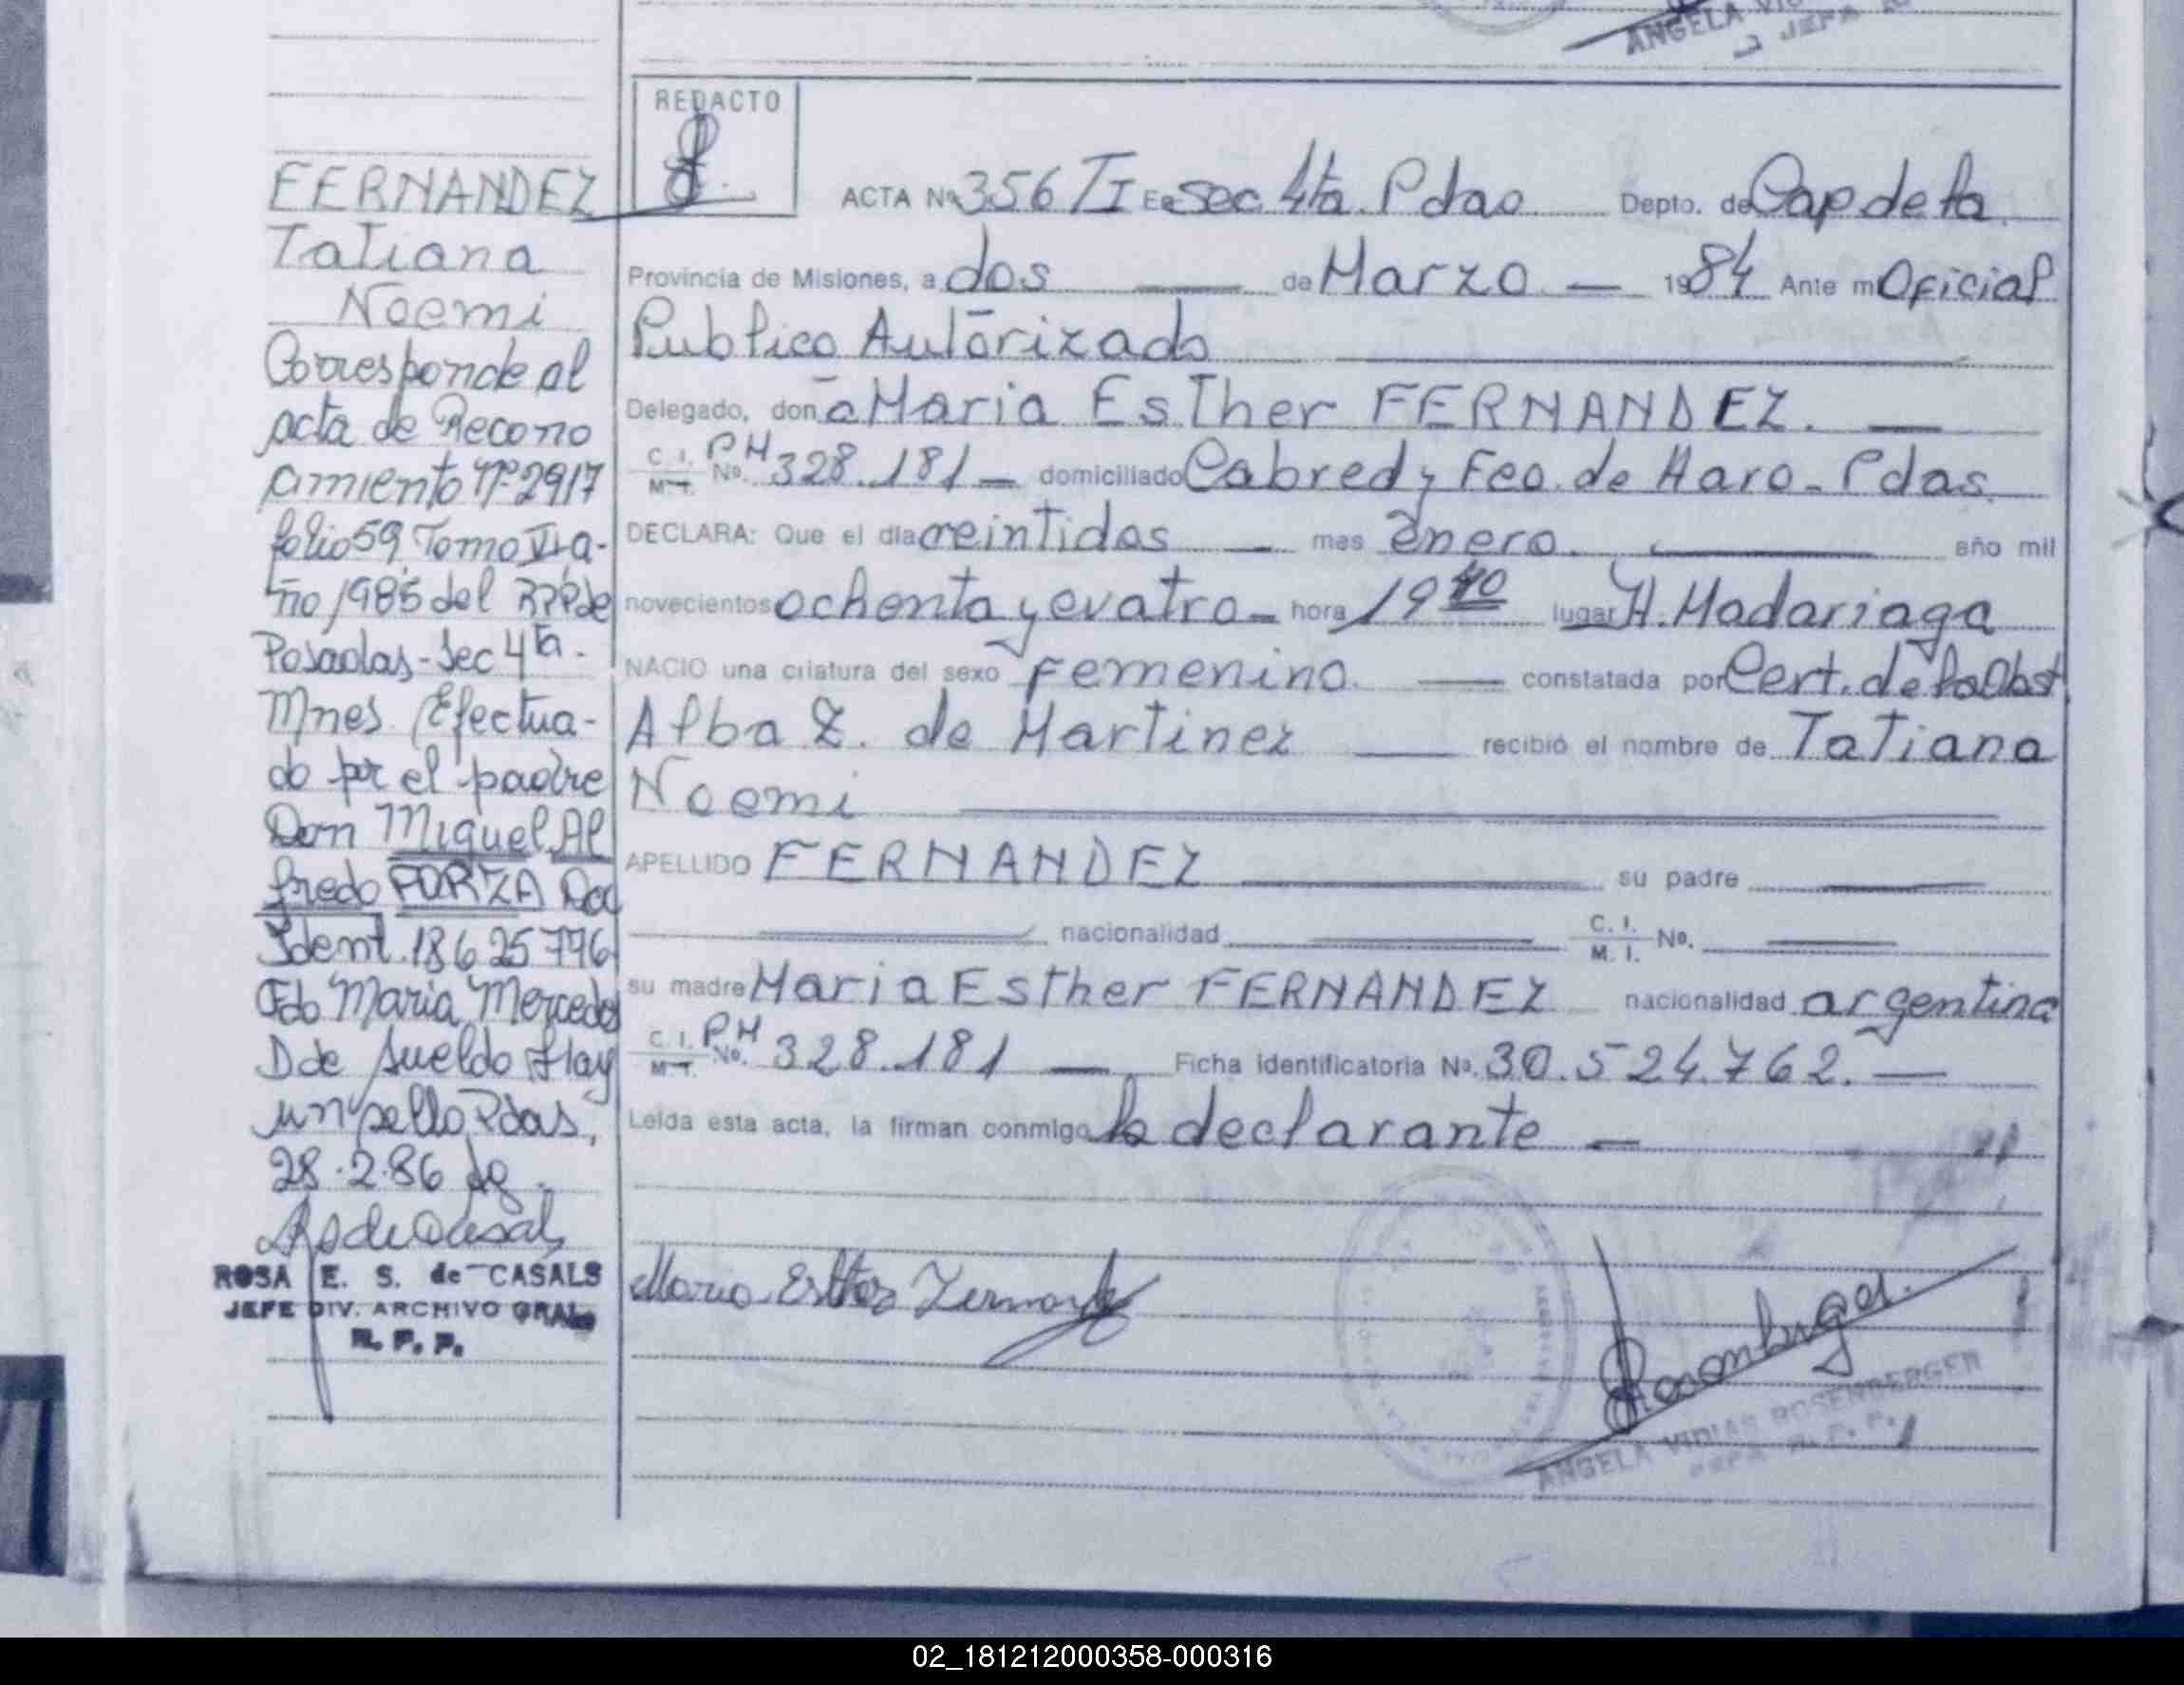 ANGELA
JEFA
FERNANDEZ
Tatiana
Noemi
Corresponde al
acta de Recono
cimiento Nº 2917
folio 59 Tomo VI a-
ño 1985 del RPP de
Posadas - Sec 4ta.
Mnes. Efectua-
do por el padre
Don Miguel Al
fredo PORZA Doc
Ident. 18625796
Fdo Maria Mercedes
D de Sueldo Hay
un sello Pdas,
28.2.86
ROSA E. S. de CASALS
JEFE DIV. ARCHIVO GRAL
R. P. P.
REDACTO
ACTA Nº 356 TI En Sec 4ta. Pdas Depto. de Cap de la
Provincia de Misiones, a dos de Marzo 1984 Ante mi Oficial
Publico Autorizado
Delegado, doña Maria Esther FERNANDEZ.
C. I. M. I. No. PH 328.181 domiciliado Cabred y Fco. de Haro - Pdas
DECLARA: Que el dia veintidos mes enero. año mil
novecientos ochenta y cuatro hora 19 40 lugar H. Madariaga
NACIO una criatura del sexo Femenino. constatada por Cert. de la Obst
Alba Z. de Martinez recibió el nombre de Tatiana
Noemi
APELLIDO FERNANDEZ su padre
nacionalidad C. I. M. I. No.
su madre Maria Esther FERNANDEZ nacionalidad argentina
C. I. M. I. No. PH 328.181 Ficha identificatoria No. 30.524.762.
Leida esta acta, la firman conmigo la declarante
Maria Esther Fernandez
Rosenberger
ANGELA VIDIAS ROSENBERGER
JEFA R. P. P.
02_181212000358-000316